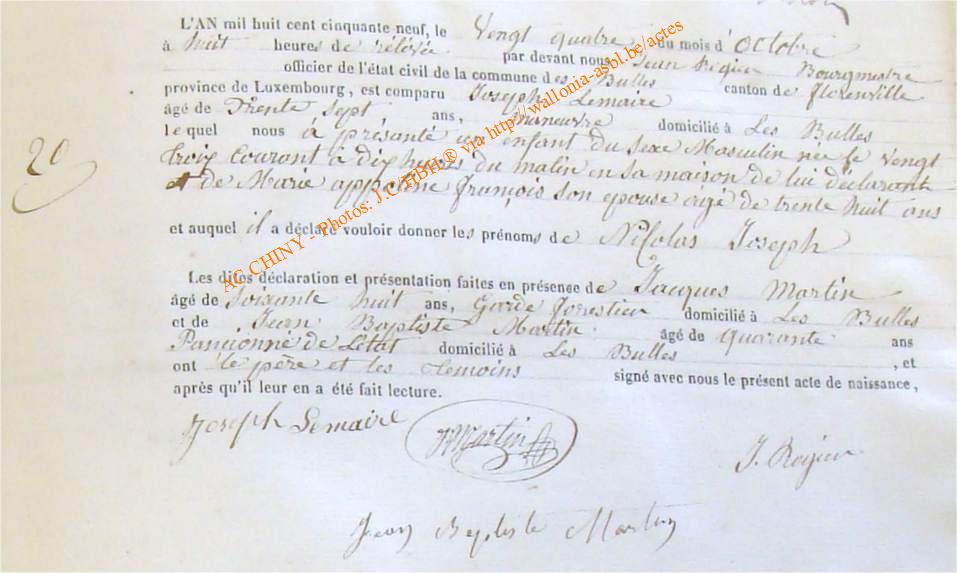 L'AN mil huit cent cinquante neuf, le Vengt quatre du mois d'Octobre
à huit heures de rélévée par devant nous Jean Regieu Bourgmestre
officier de l'état civil de la commune des Bulles canton de florenville
province de Luxembourg, est comparu Joseph Lemaire
âgé de Trente Sept ans, maneuvre domicilié à Les Bulles
lequel nous à présanté un enfant du sexe Masculin née le vengt
20
troix Courant à dix heures du matin en sa maison de lui déclarant
et de Marie appoline françois son épouse agé de trente huit ans
et auquel il a déclaré vouloir donner les prénoms de Nicolas Joseph
Les dites déclaration et présentation faites en présence de Jacques Martin
âgé de Soixante huit ans, Garde forestier domicilié à Les Bulles
et de Jean Baptiste Martin âgé de Quarante ans
Pancionné de L'état domicilié à Les Bulles , et
ont le père et les témoins signé avec nous le présent acte de naissance,
après qu'il leur en a été fait lecture.
Joseph Lemaire JMartin J. Regieu
Jean Baptiste Martin
AC CHINY - Photos: J.C/HBH ® via http://wallonia-asbl.be/actes